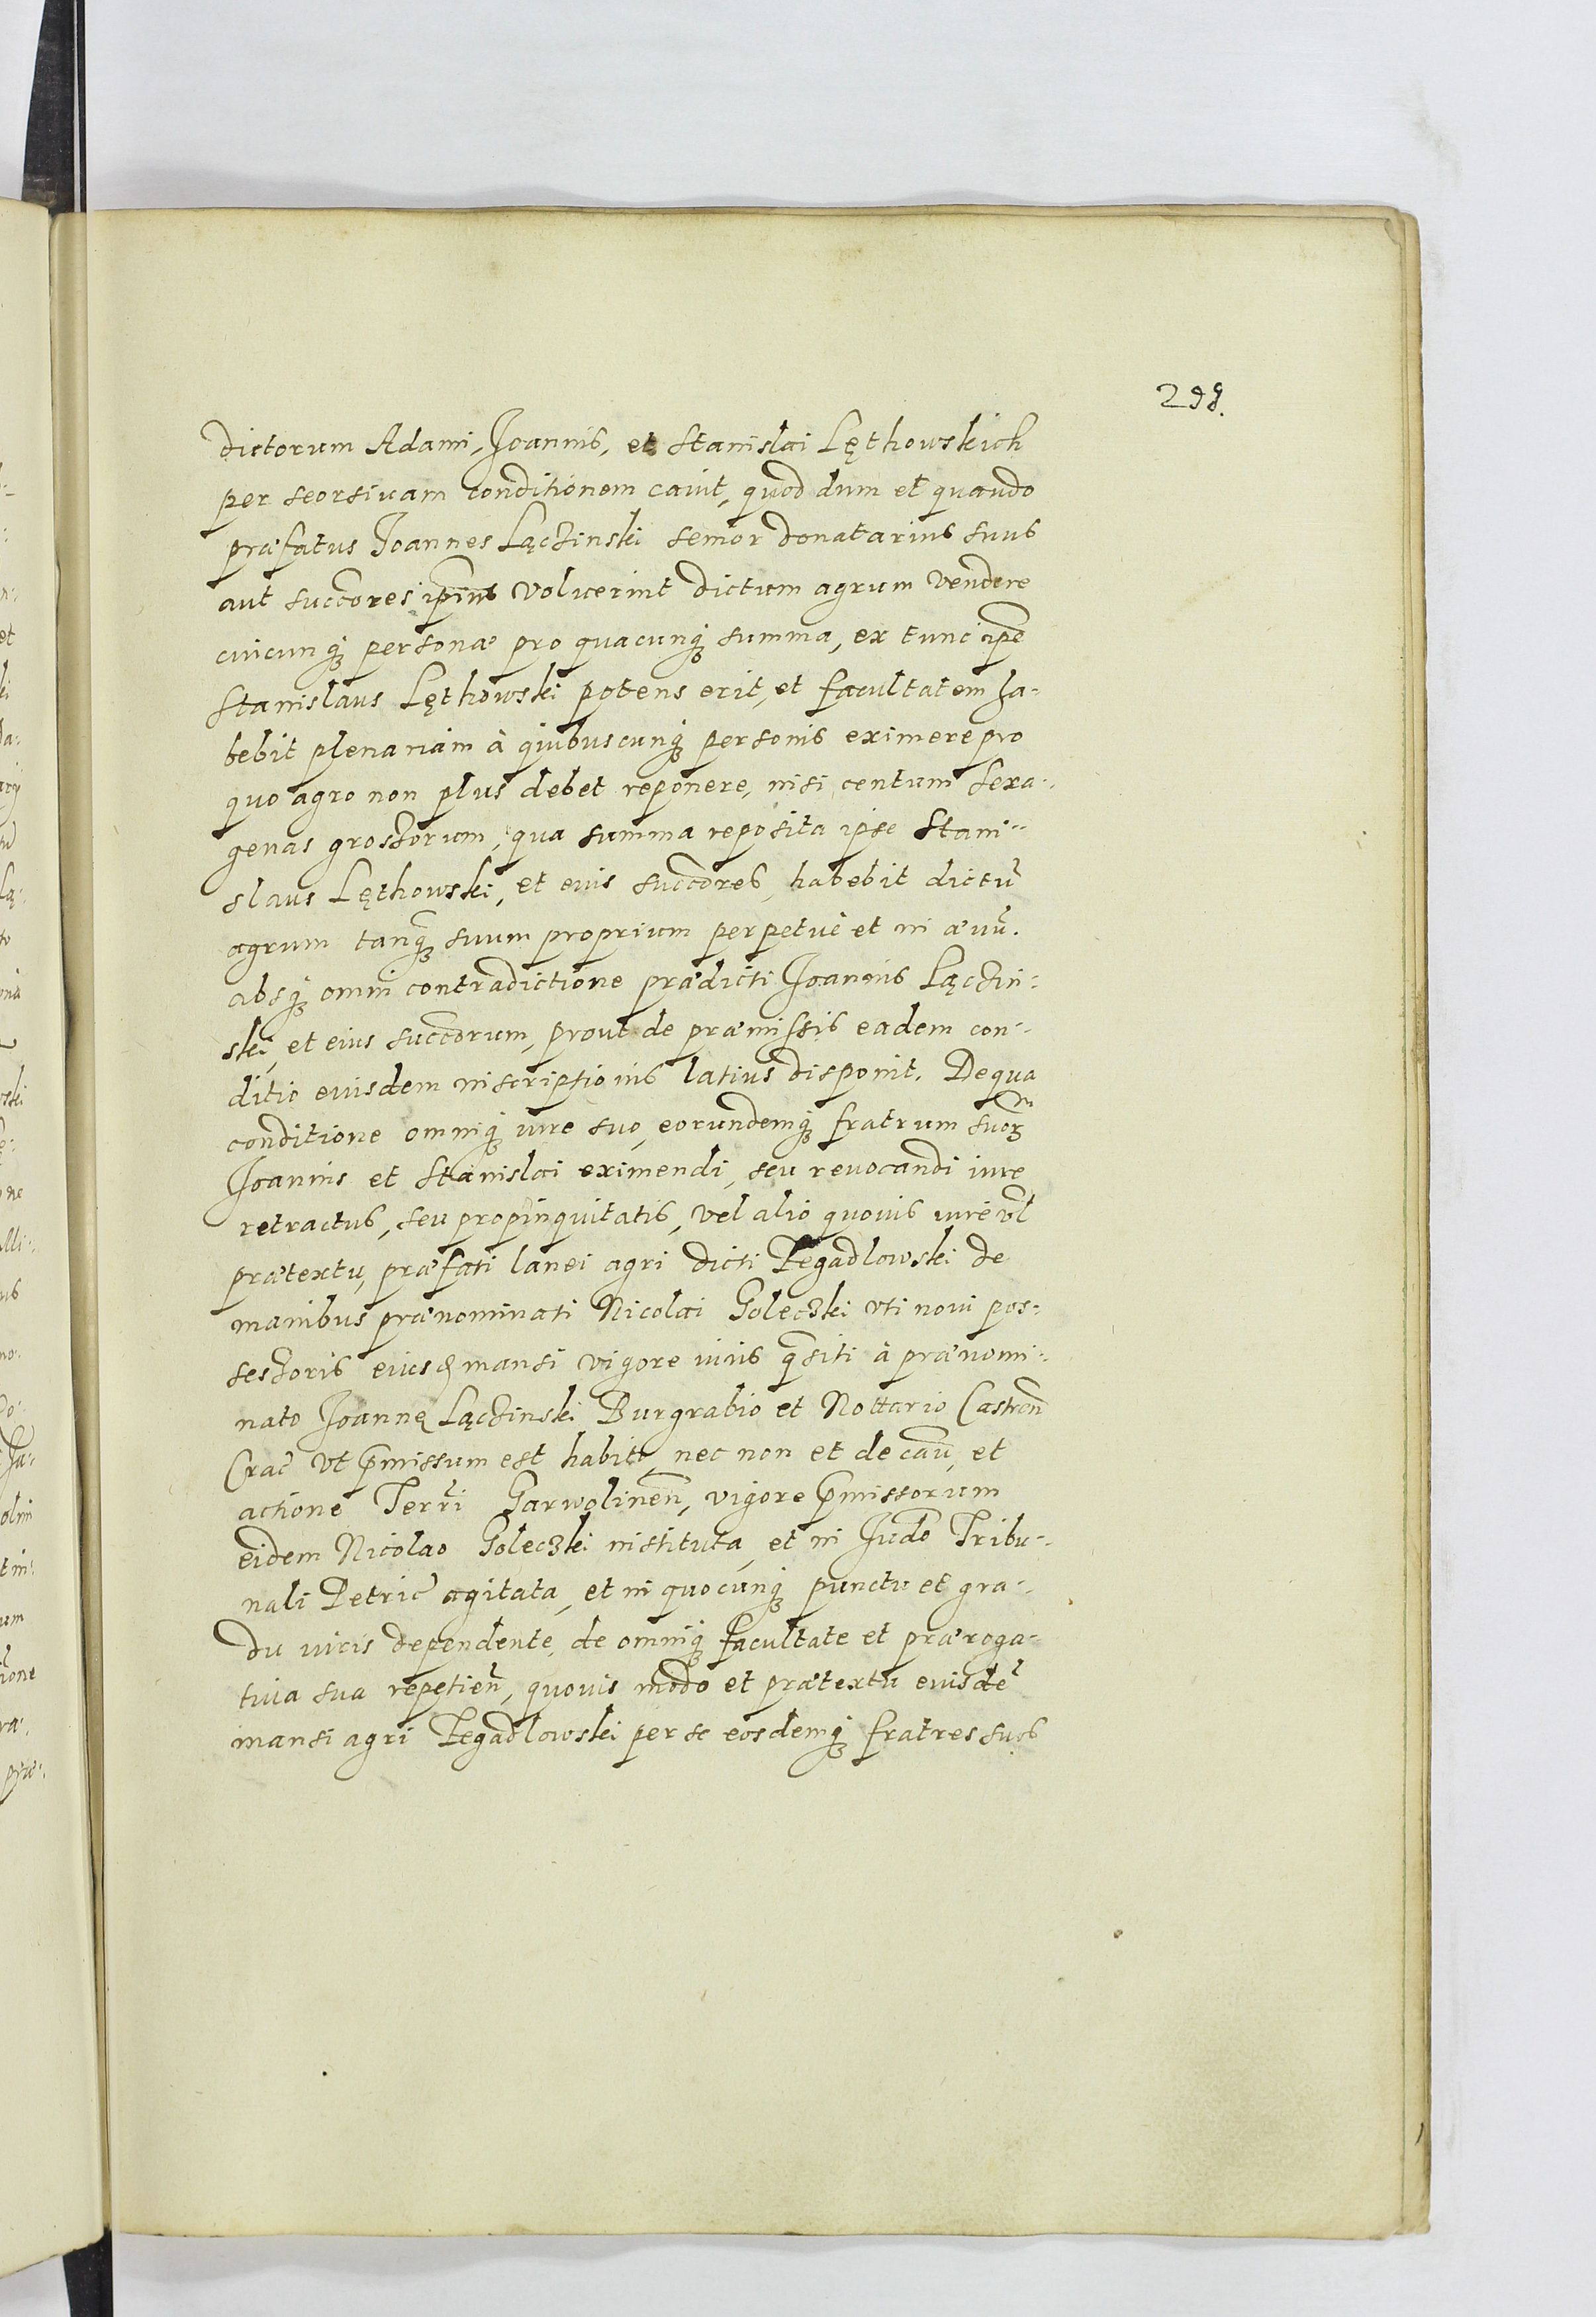 298.
dictorum Adami, Joannis, et Stanislai Lęthowskich
per seorsivam conditionem cavit, quod dum et quando
præfatus Joannes Lączinski senior donatarius suus
aut succores ipius voluerint dictum agrum vendere
cuicunq; personæ pro quacunq; summa, ex tunc ipe
Stanislaus Lęthowski potens erit, et facultatem ha-
bebit plenariam à quibuscunq; personis eximere pro
quo agro non plus debet reponere, nisi centum sexa-
genas grossorum, qua summa reposita ipse Stani-
slaus Lęthowski, et eius succores, habebit dictū
agrum tanq; suum proprium perpetuè et in ævū.
absq; omni contradictione prædicti Joannis Lączin-
ski, et eius succorum, prout de præmissis eadem con-
ditio eiusdem inscriptionis latius disponit. De qua
conditione omniq; iure suo, eorundemq; fratrum suor
Joannis et Stanislai eximendi, seu revocandi iure
retractus, seu propinquitatis, vel alio quovis iure vl
prætextu, præfati lanei agri dicti Pegadlowski de
manibus prænominati Nicolai Goleczki uti novi pos-
sessoris eiusd mansi vigore iuris qsiti à prænomi-
nato Joanne Lączinski Burgrabio et Nottario Castren
Crac ut pmissum est habito, nec non et de cau, et
actione Terri Garwolinen, vigore pmissorum
eidem Nicolao Goleczki instituta, et in Judo Tribu-
nali Petric agitata, et in quocunq; punctu et gra-
du iuris dependente, de omniq; facultate et præroga-
tiva sua repetien, quovis modo et prætextu eiusdē
mansi agri Pegadlowski per se eosdemq; fratres suos